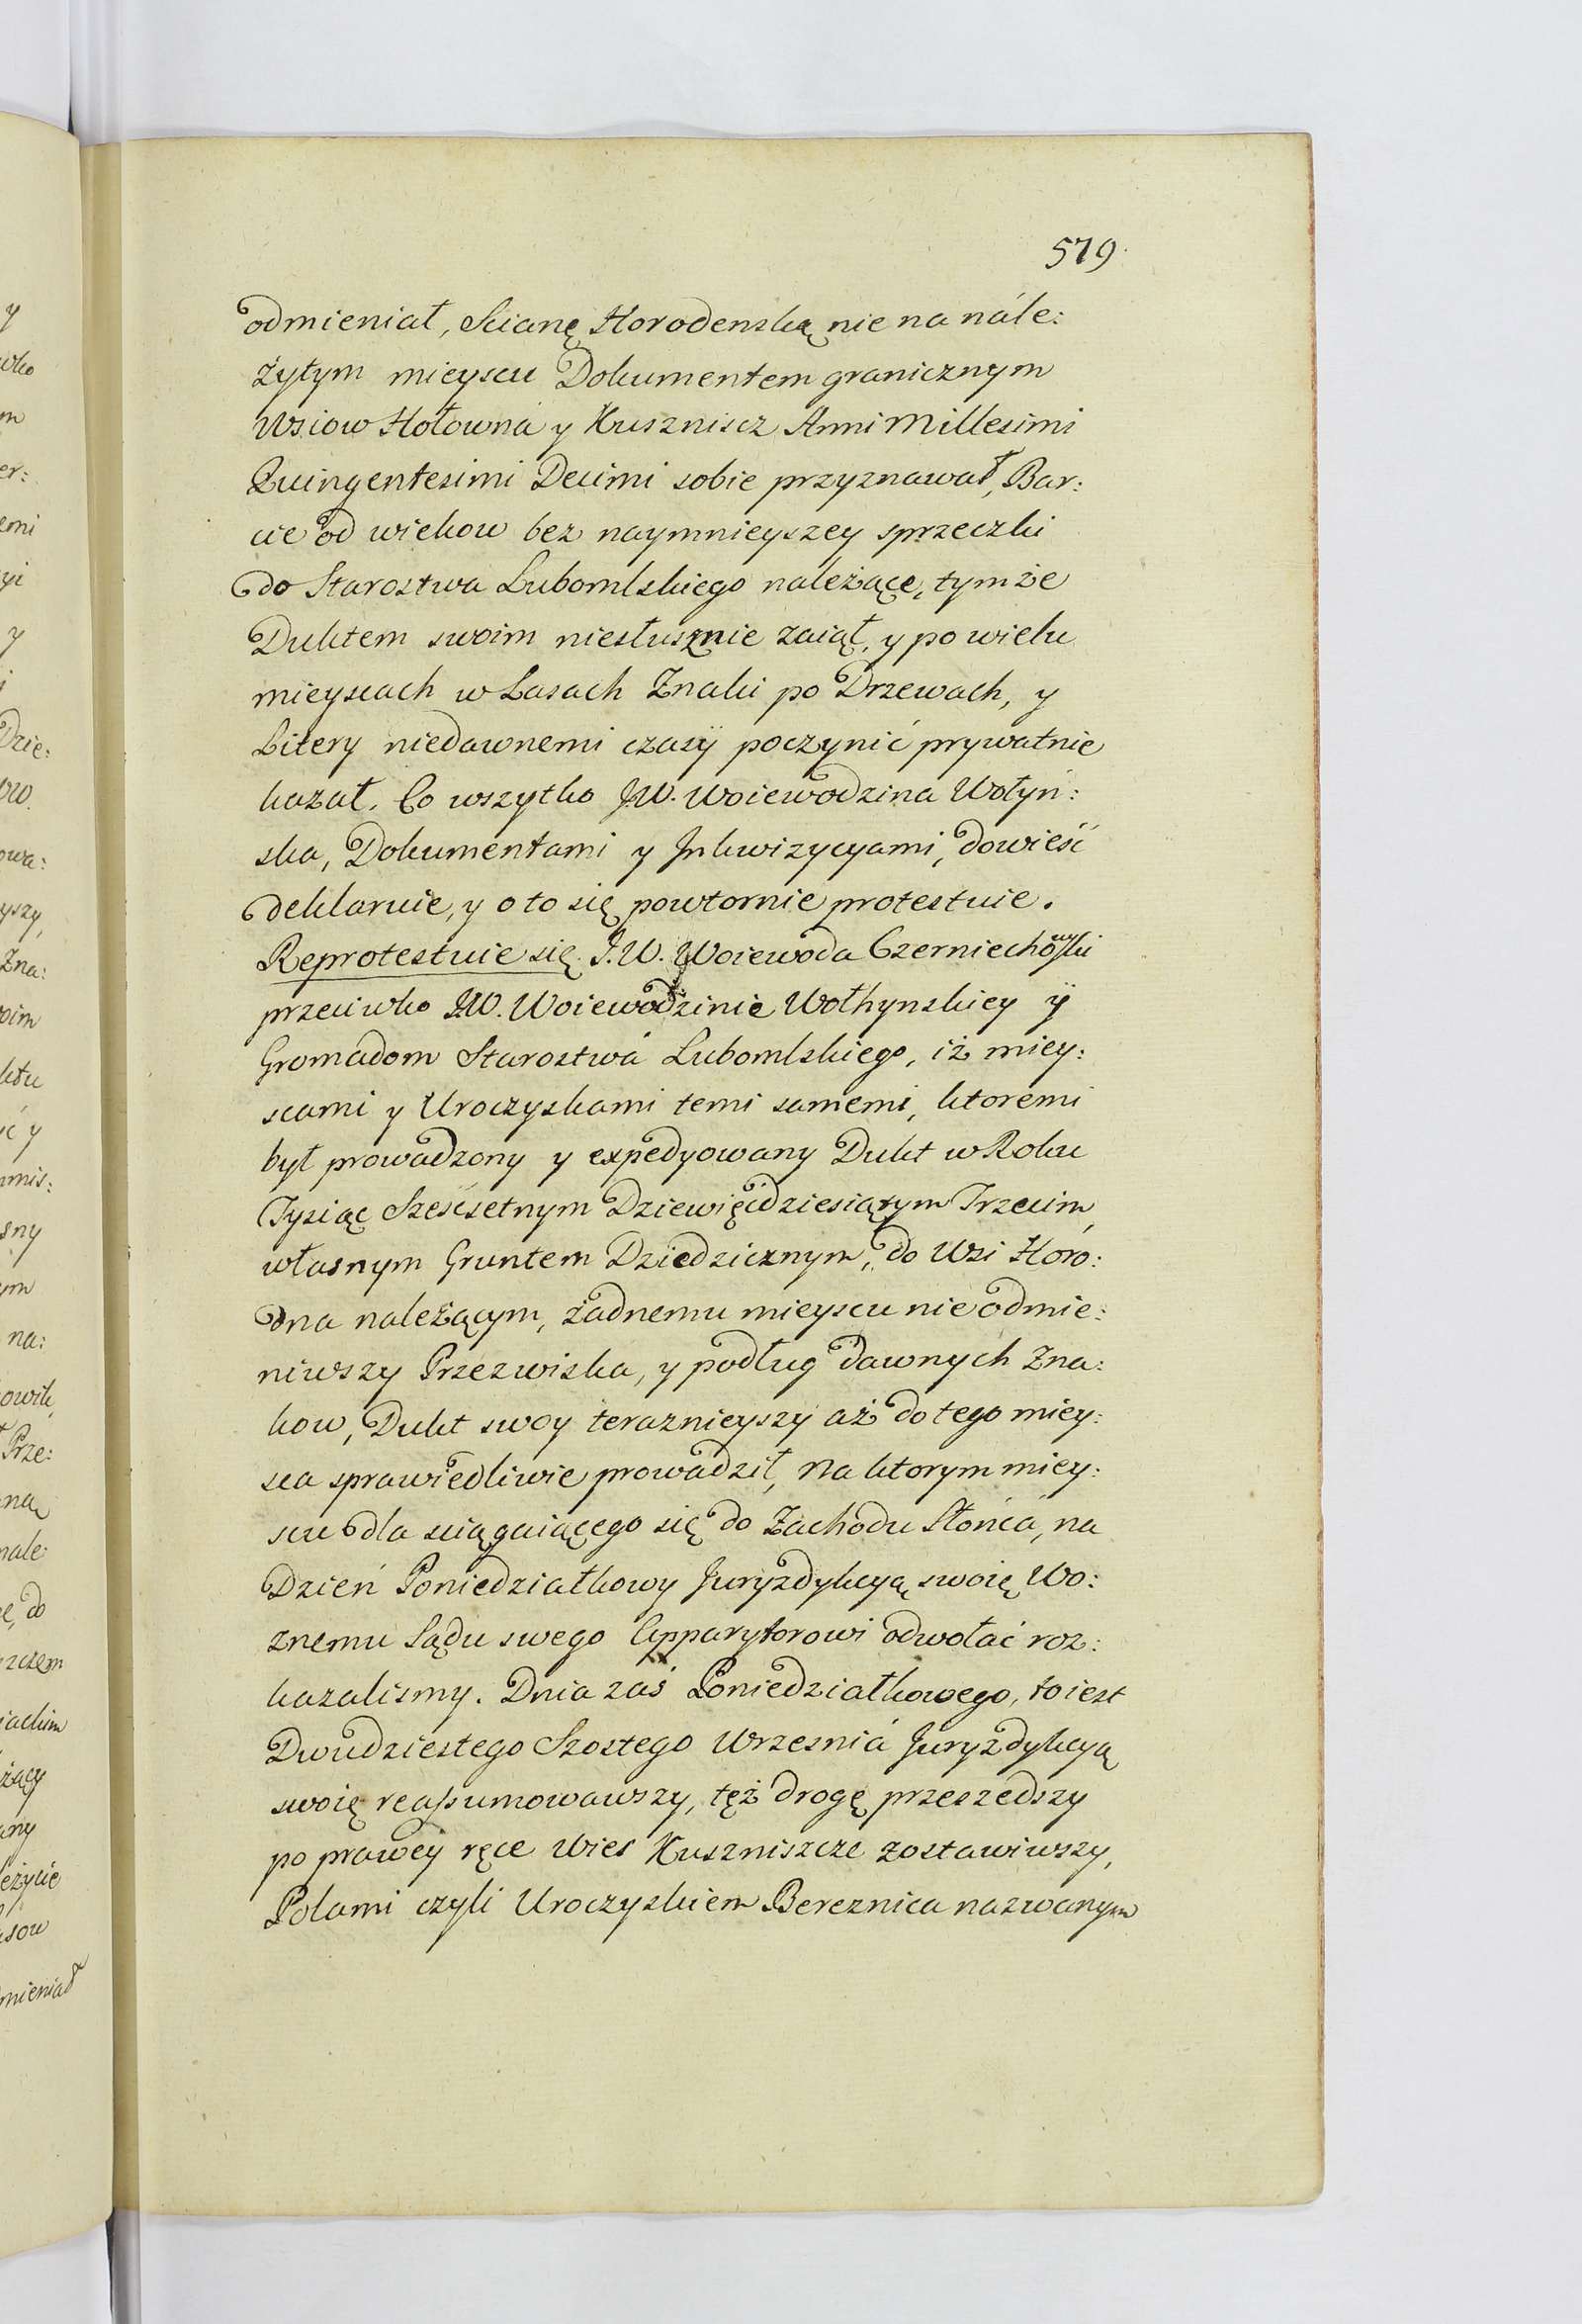 579.
odmieniał, Scianę Horodenską nie na nále:
żytym mieyscu Dokumentem granicznym
Wsiow Hołowna y Kuszniscz Anni Millesimi
Quingentesimi Decimi sobie przyznawał, Bar:
cie od wiekow bez naymnieyszey sprzeczki
do Starostwa Lubomlskiego należące, tymże
Duktem swoim niesłusznie zaiął, y po wielu
mieyscach w Lasach Znaki po Drzewach, y
Litery niedawnemi czasÿ poczynić prywatnie
kazał. Co wszytko J.W. Woiewodzina Wołyń:
ska, Dokumentami y Inkwizycyami, dowieść
deklaruie, y o to się powtornie protestuie.
Reprotestuie się J.W. Woiewoda Czerniechowski
przeciwko J.W. Woiewodzinie Wołhynskiey ÿ
Gromadom Starostwá Lubomlskiego, iż miey:
scami y Uroczyskami temi samemi, ktoremi
był prowadzony y expedyowany Dukt w Roku
Tysiąc Sześćsetnym Dziewięćdziesiątym Trzecim,
własnym Gruntem Dziedzicznym, do Wsi Horo:
dna należącym, żadnemu mieyscu nie odmie:
niwszy Przezwiska, y podług dawnych Zna:
kow, Dukt swoy teraznieyszy aż do tego miey:
sca sprawiedliwie prowadził, Na ktorym miey:
scu dla sciągaiącego się do Zachodu Słońca, na
Dzień Poniedziałkowy Juryzdykcyą swoię Wo:
znemu Sądu swego Apparytorowi odwołać roz:
kazalismy. Dnia zaś Poniedziałkowego, to iest
Dwudziestego Szostego Wrzesniá Juryzdykcyą
swoię reassumowawszy, tęż drogę przeszedszy
po prawey ręce Wies Kuszniszcze zostawiwszy,
Polami czyli Uroczyskiem Bereznica nazwanym